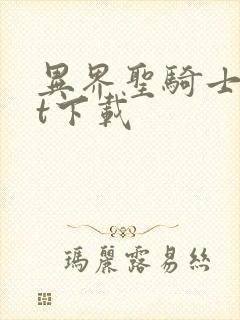 異界聖騎士
t下載
瑪麗露易絲